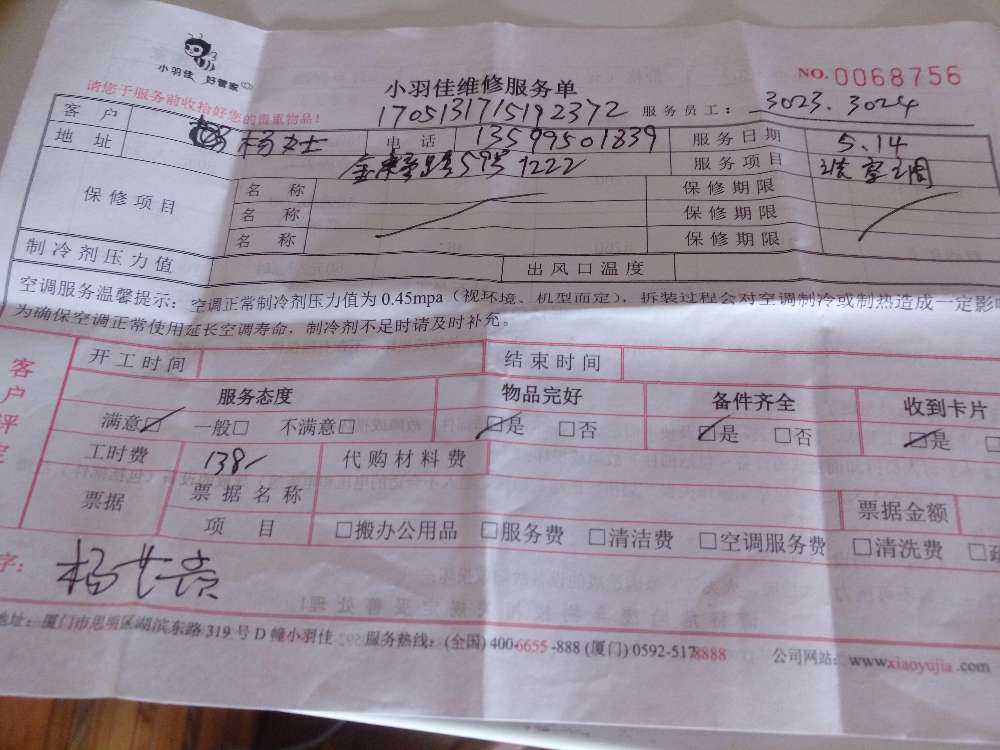 小羽佳 好管家
小羽佳维修服务单
NO. 0068756
请您于服务前收拾好您的贵重物品!
1705131715192372 服务员工: 3023. 3024
客户 杨女士 电话 13599501839 服务日期 5.14
地址 595 1222 服务项目 空调
保修项目 名称 保修期限
名称 保修期限
名称 保修期限
制冷剂压力值 出风口温度
空调服务温馨提示: 空调正常制冷剂压力值为 0.45mpa (视环境、机型而定), 拆装过程会对空调制冷或制热造成一定影
为确保空调正常使用延长空调寿命, 制冷剂不足时请及时补充。
开工时间 结束时间
客户评
服务态度 物品完好 备件齐全 收到卡片
满意☑ 一般□ 不满意□ ☑是 □否 ☑是 □否 ☑是
工时费 138/ 代购材料费
票据 票据名称 票据金额
项目 □搬办公用品 □服务费 □清洁费 □空调服务费 □清洗费
字: 杨
地址: 厦门市思明区湖滨东路 319 号 D 幢小羽佳 服务热线: (全国) 400-6655-888 (厦门) 0592-5178888 公司网站: www.xiaoyujia.com